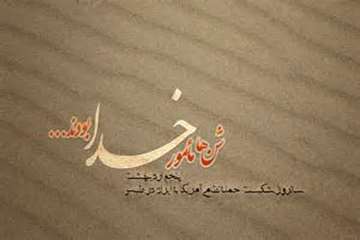 شن ها مأمور خدا بودند...
پنجم اردیبهشت
سالروز شکست حمله نظامی آمریکا به ایران در طبس